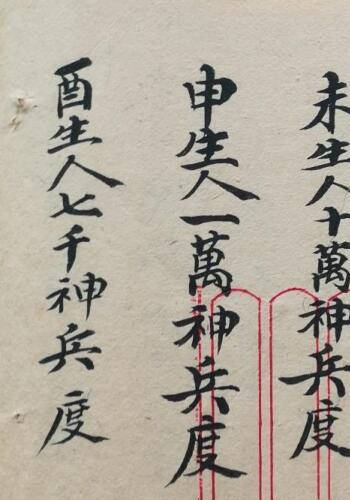 未生人十萬神兵度
申生人一萬神兵度
酉生人七千神兵度